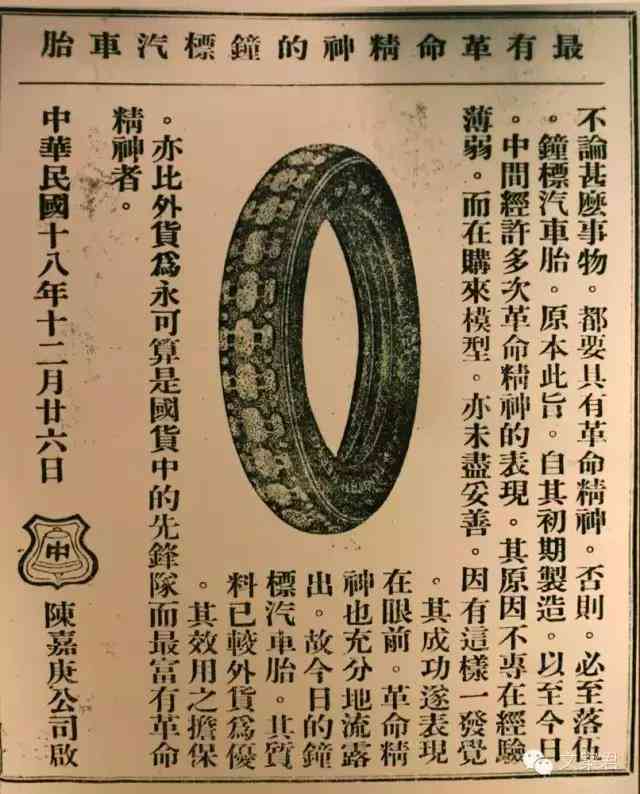 最有革命精神的鐘標汽車胎
不論甚麽事物。都要具有革命精神。否則。必至落伍
。鐘標汽車胎。原本此旨。自其初期製造。以至今日
。中間經許多次革命精神的表現。其原因不專在經驗
薄弱。而在購來模型。亦未盡妥善。因有這樣一發覺
。其成功遂表現
在眼前。革命精
神也充分地流露
出。故今日的鐘
標汽車胎。其質
料已較外貨爲優
。其效用之擔保
。亦比外貨爲永可算是國貨中的先鋒隊而最富有革命
精神者。
中華民國十八年十二月廿六日
中
陳嘉庚公司啟